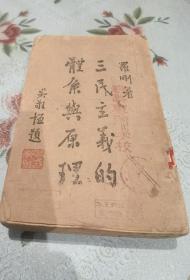 羅剛著
三民主義的
體系與原理
吳敬恆題